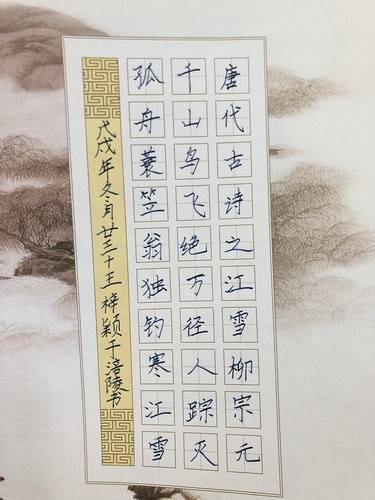 唐代古诗之江雪柳宗元
千山鸟飞绝万径人踪灭
孤舟蓑笠翁独钓寒江雪
戊戌年冬月廿三十王梓颖于涪陵书